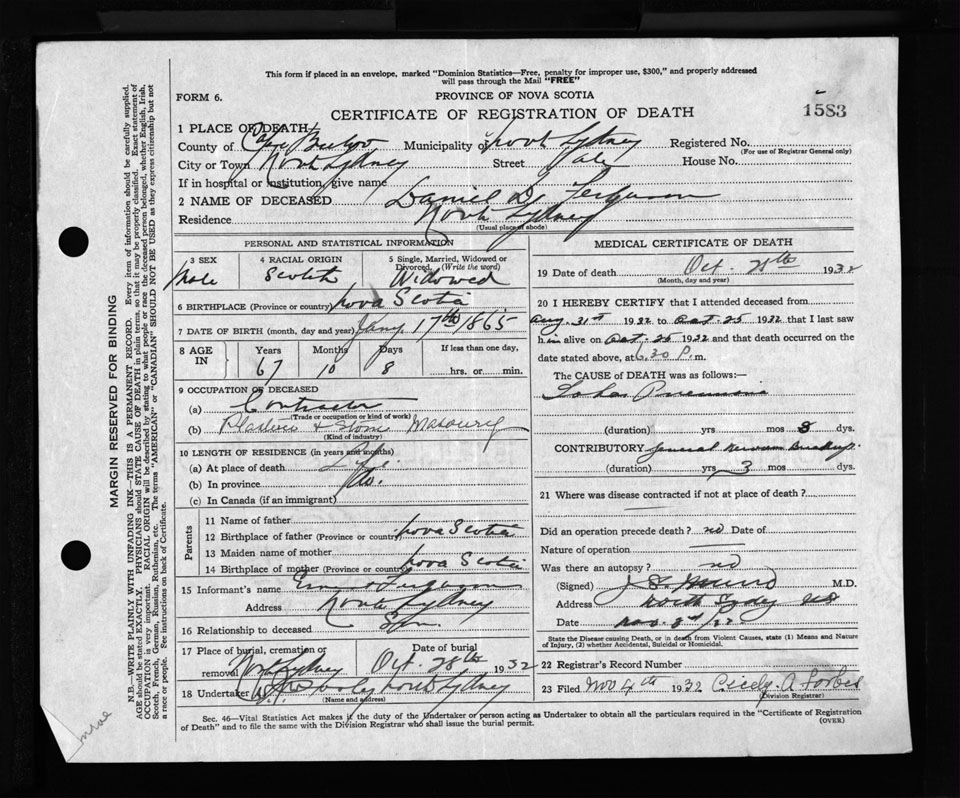 This form if placed in an envelope, marked "Dominion Statistics—Free, penalty for improper use, $300," and properly addressed
will pass through the Mail "FREE"
FORM 6.
PROVINCE OF NOVA SCOTIA
CERTIFICATE OF REGISTRATION OF DEATH
1583
1 PLACE OF DEATH
County of Cape Breton Municipality of North Sydney Registered No.
(For use of Registrar General only)
City or Town North Sydney Street House No.
If in hospital or institution, give name
2 NAME OF DECEASED Daniel D. Ferguson
Residence North Sydney
(Usual place of abode)
PERSONAL AND STATISTICAL INFORMATION
3 SEX Male
4 RACIAL ORIGIN Scotch
5 Single, Married, Widowed or
Divorced. (Write the word)
Widowed
6 BIRTHPLACE (Province or country) Nova Scotia
7 DATE OF BIRTH (month, day and year) Jany 17th 1865
8 AGE IN Years Months Days If less than one day,
67 10 8 hrs. or min.
9 OCCUPATION OF DECEASED
(a) Contractor
(Trade or occupation or kind of work)
(b) & Stone
(Kind of industry)
10 LENGTH OF RESIDENCE (in years and months)
(a) At place of death Life
(b) In province Do.
(c) In Canada (if an immigrant)
Parents
11 Name of father
12 Birthplace of father (Province or country) Nova Scotia
13 Maiden name of mother
14 Birthplace of mother (Province or country) Nova Scotia
15 Informant's name Ferguson
Address North Sydney
16 Relationship to deceased Son
17 Place of burial, cremation or
removal North Sydney
Date of burial
Oct. 28th 1932
18 Undertaker North Sydney
(Name and address)
MEDICAL CERTIFICATE OF DEATH
19 Date of death Oct. 25th 1932
(Month, day and year)
20 I HEREBY CERTIFY that I attended deceased from
Aug. 31st 1932 to Oct. 25 1932 that I last saw
him alive on Oct. 25 1932 and that death occurred on the
date stated above, at 6.30 P. m.
The CAUSE of DEATH was as follows:—
Lobar Pneumonia
(duration) yrs mos 8 dys.
CONTRIBUTORY General
(duration) yrs 3 mos dys.
21 Where was disease contracted if not at place of death?
Did an operation precede death? no Date of
Nature of operation
Was there an autopsy? no
(Signed) M.D.
Address North Sydney NS
Date Nov. 3rd/32
State the Disease causing Death, or in death from Violent Causes, state (1) Means and Nature
of Injury, (2) whether Accidental, Suicidal or Homicidal.
22 Registrar's Record Number
23 Filed Nov 4th 1932 Cecily A. Forbes
Division Registrar)
Sec. 46—Vital Statistics Act makes it the duty of the Undertaker or person acting as Undertaker to obtain all the particulars required in the "Certificate of Registration
of Death" and to file the same with the Division Registrar who shall issue the burial permit.
(OVER)
MARGIN RESERVED FOR BINDING
N.B.—WRITE PLAINLY WITH UNFADING INK—THIS IS A PERMANENT RECORD. Every item of information should be carefully supplied.
AGE should be stated EXACTLY. PHYSICIANS should STATE CAUSE OF DEATH in plain terms, so that it may be properly classified. Exact statement of
OCCUPATION is very important. RACIAL ORIGIN will be described by stating to what people or race the deceased person belonged, whether English, Irish,
Scotch, French, German, Russian, Ruthenian, etc. The terms "AMERICAN" or "CANADIAN" SHOULD NOT BE USED as they express citizenship but not
a race or people. See instructions on back of Certificate.